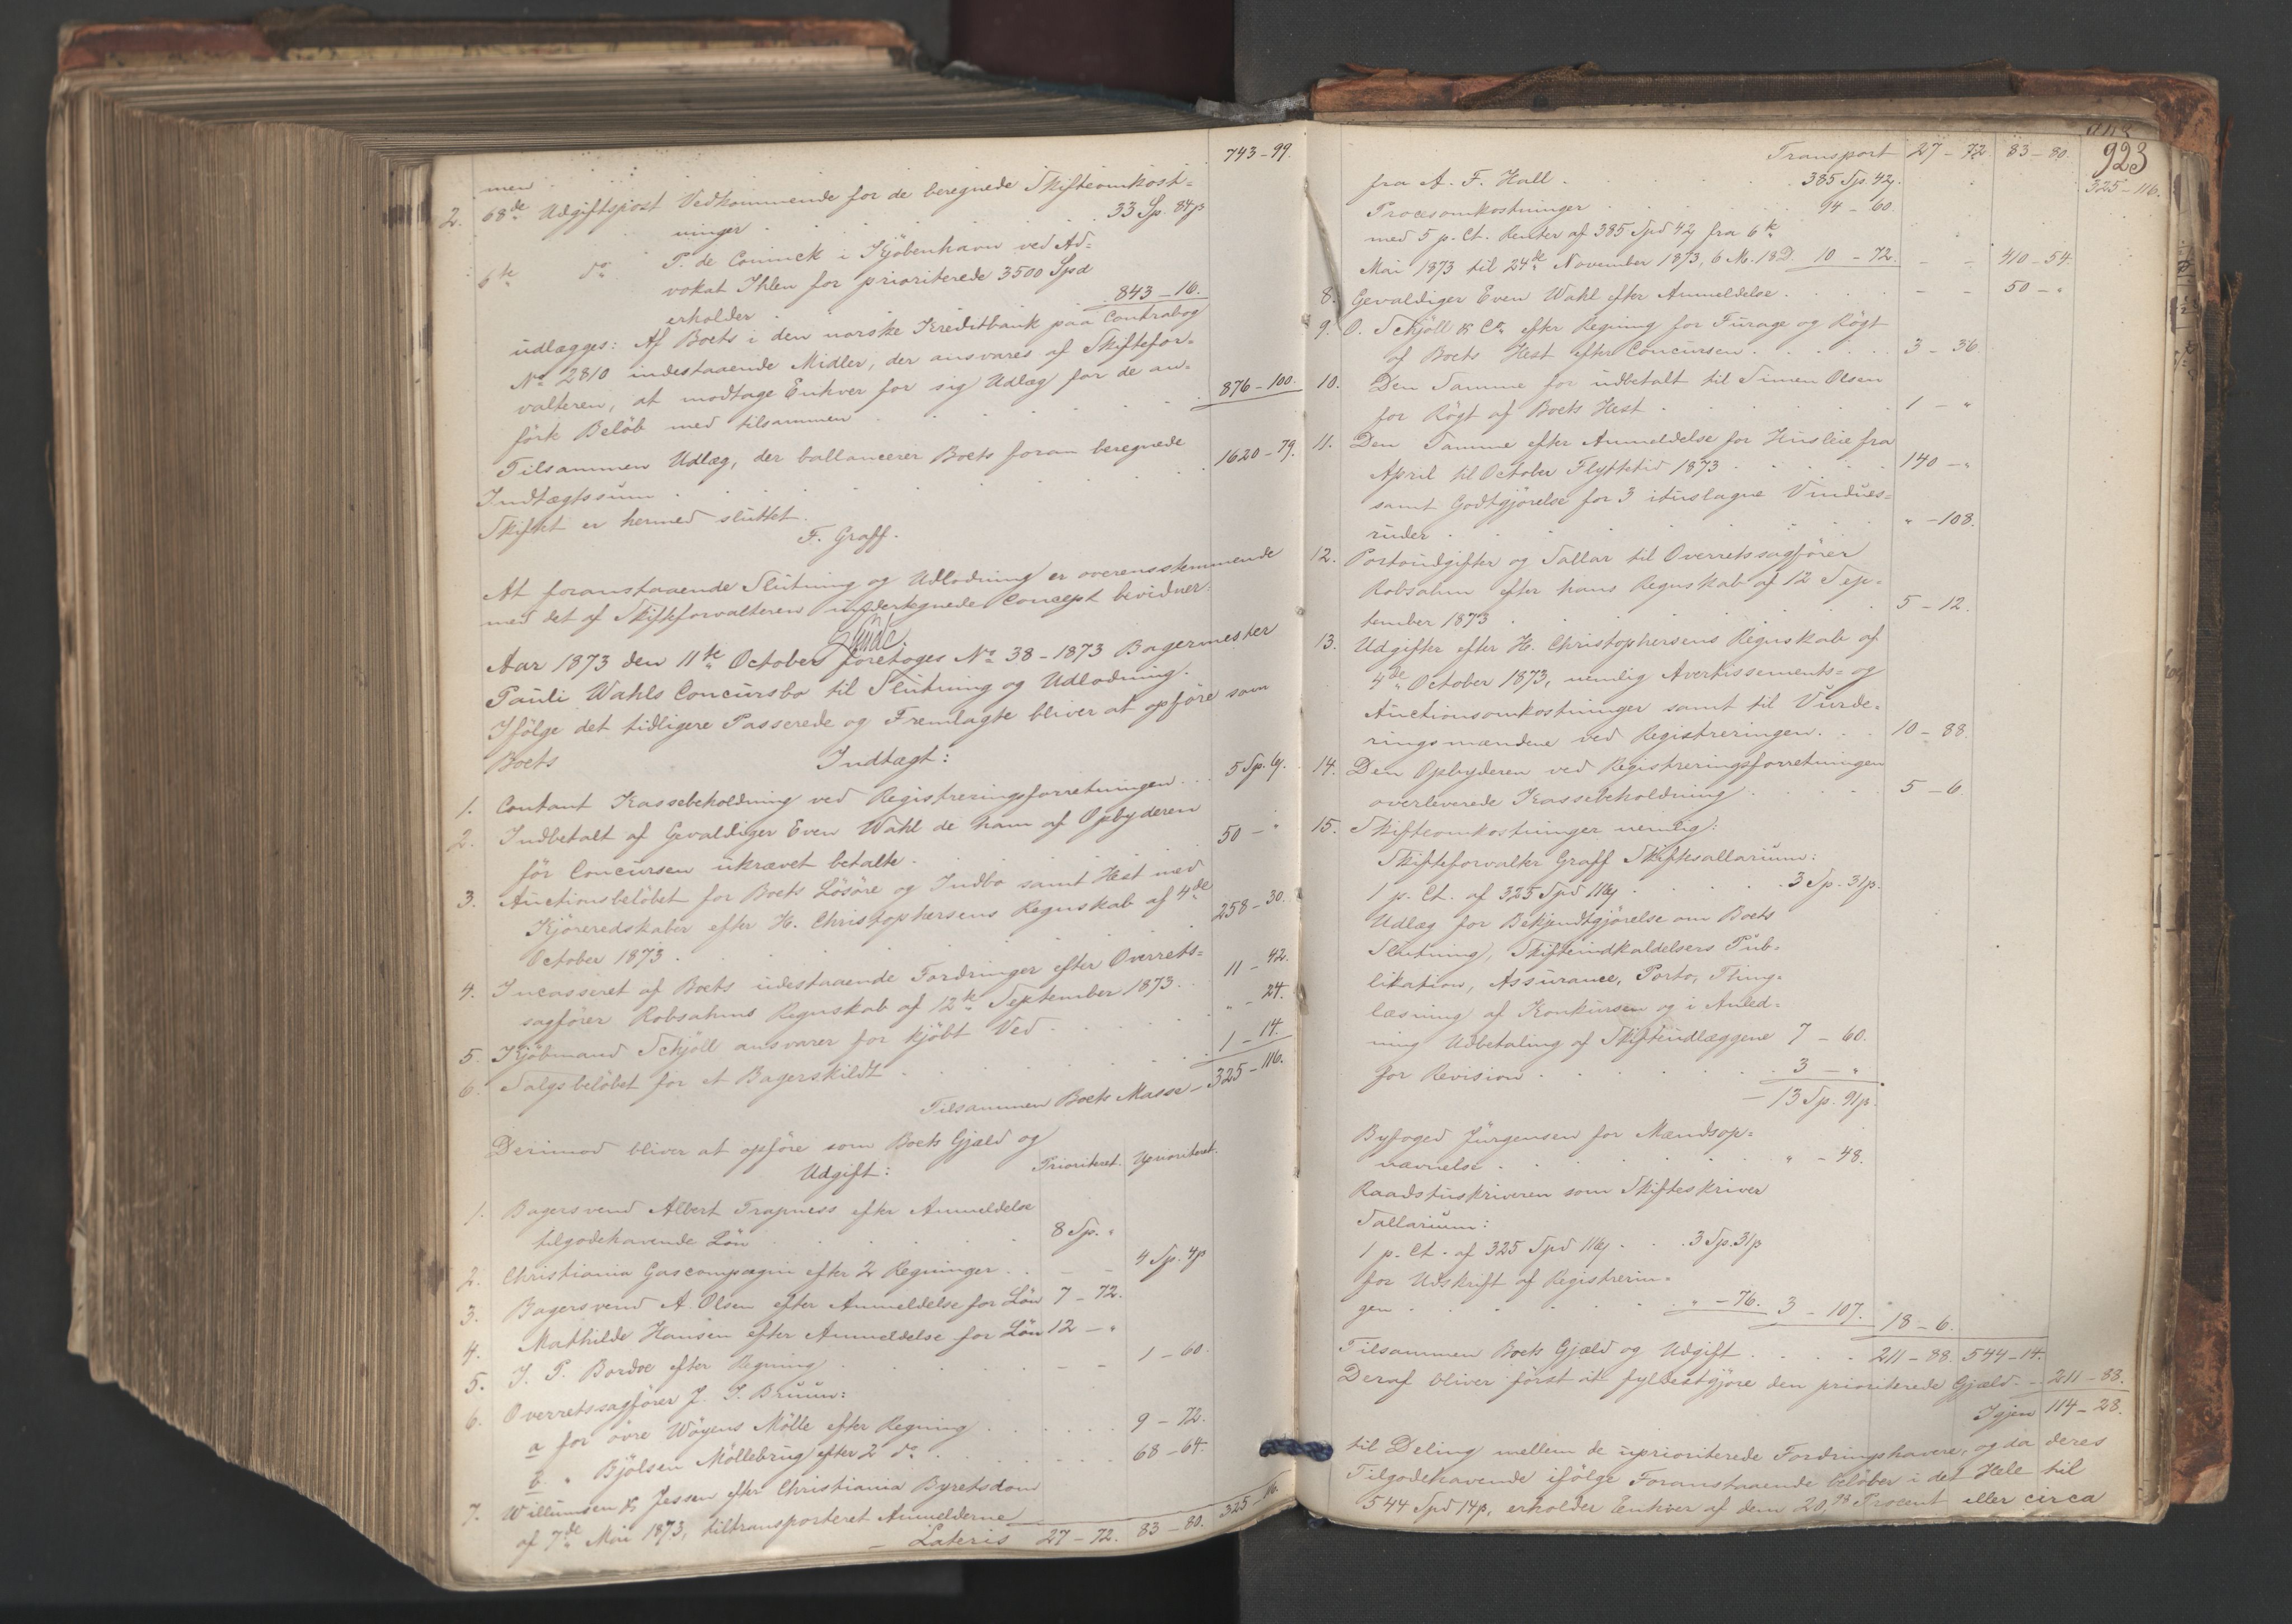 743-99.
men
2. 68de Udgiftspost Vedkommende for de beregnede Skifteomkost=
ninger . . . 33 Sp. 84 β
6te do P. de Coninck i Kjöbenhavn ved Ad=
vokat Ihlen for prioriterede 3500 Spd
erholder . . . 843 - 16.
udlægges: Af Boets i den norske Kreditbank paa Contrabog
No 2810 indestaaende Midler, der ansvares af Skiftefor=
valteren, at modtage Enhver for sig Udlæg for de an=
förte Beløb med tilsammen . . . 876-100.
Tilsammen Udlæg, der ballancerer Boets foran beregnede
Indtægtssum . . . 1620-79.
Skiftet er hermed sluttet.
F. Graff.
At foranstaaende Slutning og Udlodning er overensstemmende
med det af Skifteforvalteren undertegnede Concept bevidner.
Gude.
Aar 1873 den 11te October foretoges No 38-1873 Bagermester
Pauli Wahls Concursbo til Slutning og Udlodning.
Ifölge det tidligere Passerede og Fremlagte bliver at opföre som
Boets Indtægt:
1. Contant Kassebeholdning ved Registreringsforretningen . . 5 Sp. 6 β.
2. Indbetalt af Gevaldiger Even Wahl de ham af Opbyderen
för Concursen ukrævet betalte . . . 50 - "
3. Auctionsbelöbet for Boets Lösöre og Indbo samt Hest med
Kjöreredskaber efter H. Christophersens Regnskab af 4de
October 1873 . . . 258-30.
4. Incasseret af Boets udestaaende Fordringer efter Overrets=
sagförer Robsahms Regnskab af 12te September 1873 . . 11-42.
5. Kjöbmand Schjöll ansvarer for kjöbt Ved . . . " - 24.
6. Salgsbelöbet for et Bagerskildt . . . 1 - 14.
Tilsammen Boets Masse - 325-116.
Derimod bliver at opföre som Boets Gjæld og
Udgift: Prioriteret. Uprioriteret.
1. Bagersvend Albert Trapness efter Anmeldelse
tilgodehavende Lön . . . 8 Sp. "
2. Christiania Gascompagni efter 2 Regninger . . - - 4 Sp. 4 β
3. Bagersvend A. Olsen efter Anmeldelse for Lön 7 - 72.
4. Mathilde Hansen efter Anmeldelse for Lön 12 - "
5. I. P. Bordoe efter Regning . . . - - 1 - 60.
6. Overretssagförer J. I. Bruun:
a for övre Wöyens Mölle efter Regning . . . 9 - 72.
b. " Bjölsen Möllebrug efter 2 do . . . 68 - 64.
7. Willumsen & Jessen efter Christiania Byretsdom
af 7de Mai 1873, tiltransporteret Anmelderne
- Lateris 27 - 72. 83 - 80. 325-116.
923
Transport 27 - 72. 83 - 80. 325-116.
fra A. F. Hall . . . 385 Sp. 42 β.
Procesomkostninger . . . 94 - 60.
med 5 p. Ct. Renter af 385 Spd 42 β fra 6te
Mai 1873 til 24de November 1873, 6 M. 18 D. 10 - 72. - - 410-54.
8. Gevaldiger Even Wahl efter Anmeldelse . . . - - 50 - "
9. O. Schjöll & Co efter Regning for Furage og Rögt
af Boets Hest efter Concursen . . . 3 - 36.
10. Den Samme for udbetalt til Simen Olsen
for Rögt af Boets Hest . . . 1 - "
11. Den Samme efter Anmeldelse for Husleie fra
April til October Flyttetid 1873 . . . 140 - "
samt Godtgjörelse for 3 ituslagne Vindues=
ruder . . . " - 108.
12. Portoudgifter og Sallar til Overretssagförer
Robsahm efter hans Regnskab af 12 Sep=
tember 1873 . . . 5 - 12.
13. Udgifter efter H. Christophersens Regnskab af
4de October 1873, nemlig Avertissements= og
Auctionsomkostninger samt til Vurde=
ringsmændene ved Registreringen . . . 10 - 88.
14. Den Opbyderen ved Registreringsforretningen
overleverede Kassebeholdning . . . 5 - 6
15. Skifteomkostninger nemlig:
Skifteforvalter Graff Skiftesallarium:
1 p. Ct. af 325 Spd 116 β . . . 3 Sp. 31 β.
Udlæg for Bekjendtgjörelse om Boets
Slutning, Skifteindkaldelsers Pub=
likation, Assurance, Porto, Thing=
læsning af Konkursen og i Anled=
ning Udbetaling af Skifteudlæggene 7 - 60.
for Revision . . . 3 - "
- 13 Sp. 91 β.
Byfoged Jürgensen for Mændsop=
nævnelse . . . " - 48.
Raadstuskriveren som Skifteskriver
Sallarium:
1 p. Ct. af 325 Spd 116 β . . . 3 Sp. 31 β
for Udskrift af Registrerin=
gen . . . " - 76. 3 - 107. 18 - 6.
Tilsammen Boets Gjæld og Udgift . . . 211-88. 544-14.
Deraf bliver först at fyldestgjöre den prioriterede Gjæld - - 211-88.
Igjen 114-28.
til Deling mellem de uprioriterede Fordringshavere, og da deres
Tilgodehavende ifölge Foranstaaende belöber i det Hele til
544 Spd 14 β, erholder Enhver af dem 20,98 Procent eller circa